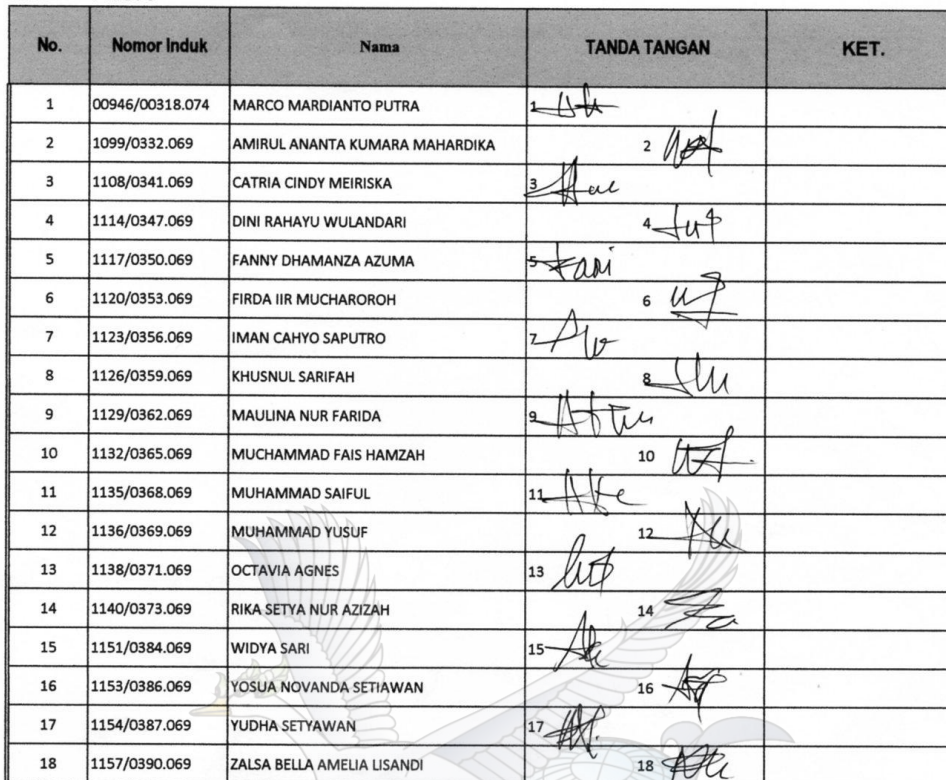 No. Nomor Induk Nama TANDA TANGAN KET.
1 00946/00318.074 MARCO MARDIANTO PUTRA 1
2 1099/0332.069 AMIRUL ANANTA KUMARA MAHARDIKA 2
3 1108/0341.069 CATRIA CINDY MEIRISKA 3
4 1114/0347.069 DINI RAHAYU WULANDARI 4
5 1117/0350.069 FANNY DHAMANZA AZUMA 5
6 1120/0353.069 FIRDA IIR MUCHAROROH 6
7 1123/0356.069 IMAN CAHYO SAPUTRO 7
8 1126/0359.069 KHUSNUL SARIFAH 8
9 1129/0362.069 MAULINA NUR FARIDA 9
10 1132/0365.069 MUCHAMMAD FAIS HAMZAH 10
11 1135/0368.069 MUHAMMAD SAIFUL 11
12 1136/0369.069 MUHAMMAD YUSUF 12
13 1138/0371.069 OCTAVIA AGNES 13
14 1140/0373.069 RIKA SETYA NUR AZIZAH 14
15 1151/0384.069 WIDYA SARI 15
16 1153/0386.069 YOSUA NOVANDA SETIAWAN 16
17 1154/0387.069 YUDHA SETYAWAN 17
18 1157/0390.069 ZALSA BELLA AMELIA LISANDI 18